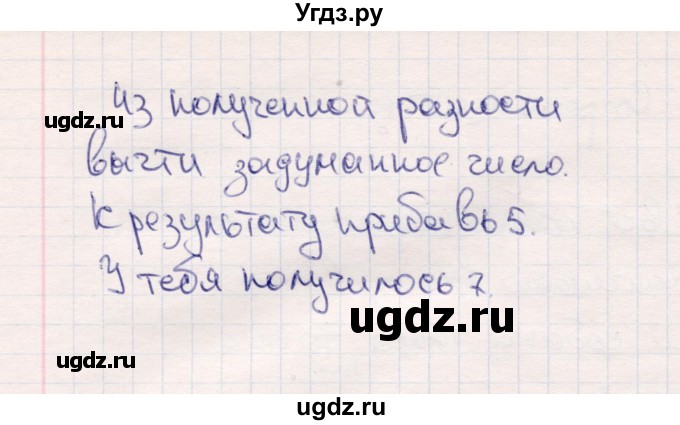 Угдз.ру
Из полученной разности
ugdz.ru
вычти задуманное число.
ugdz.ru
К результату прибавь 5.
У тебя получилось 7.
ugdz.ru
ugdz.ru
ugdz.ru